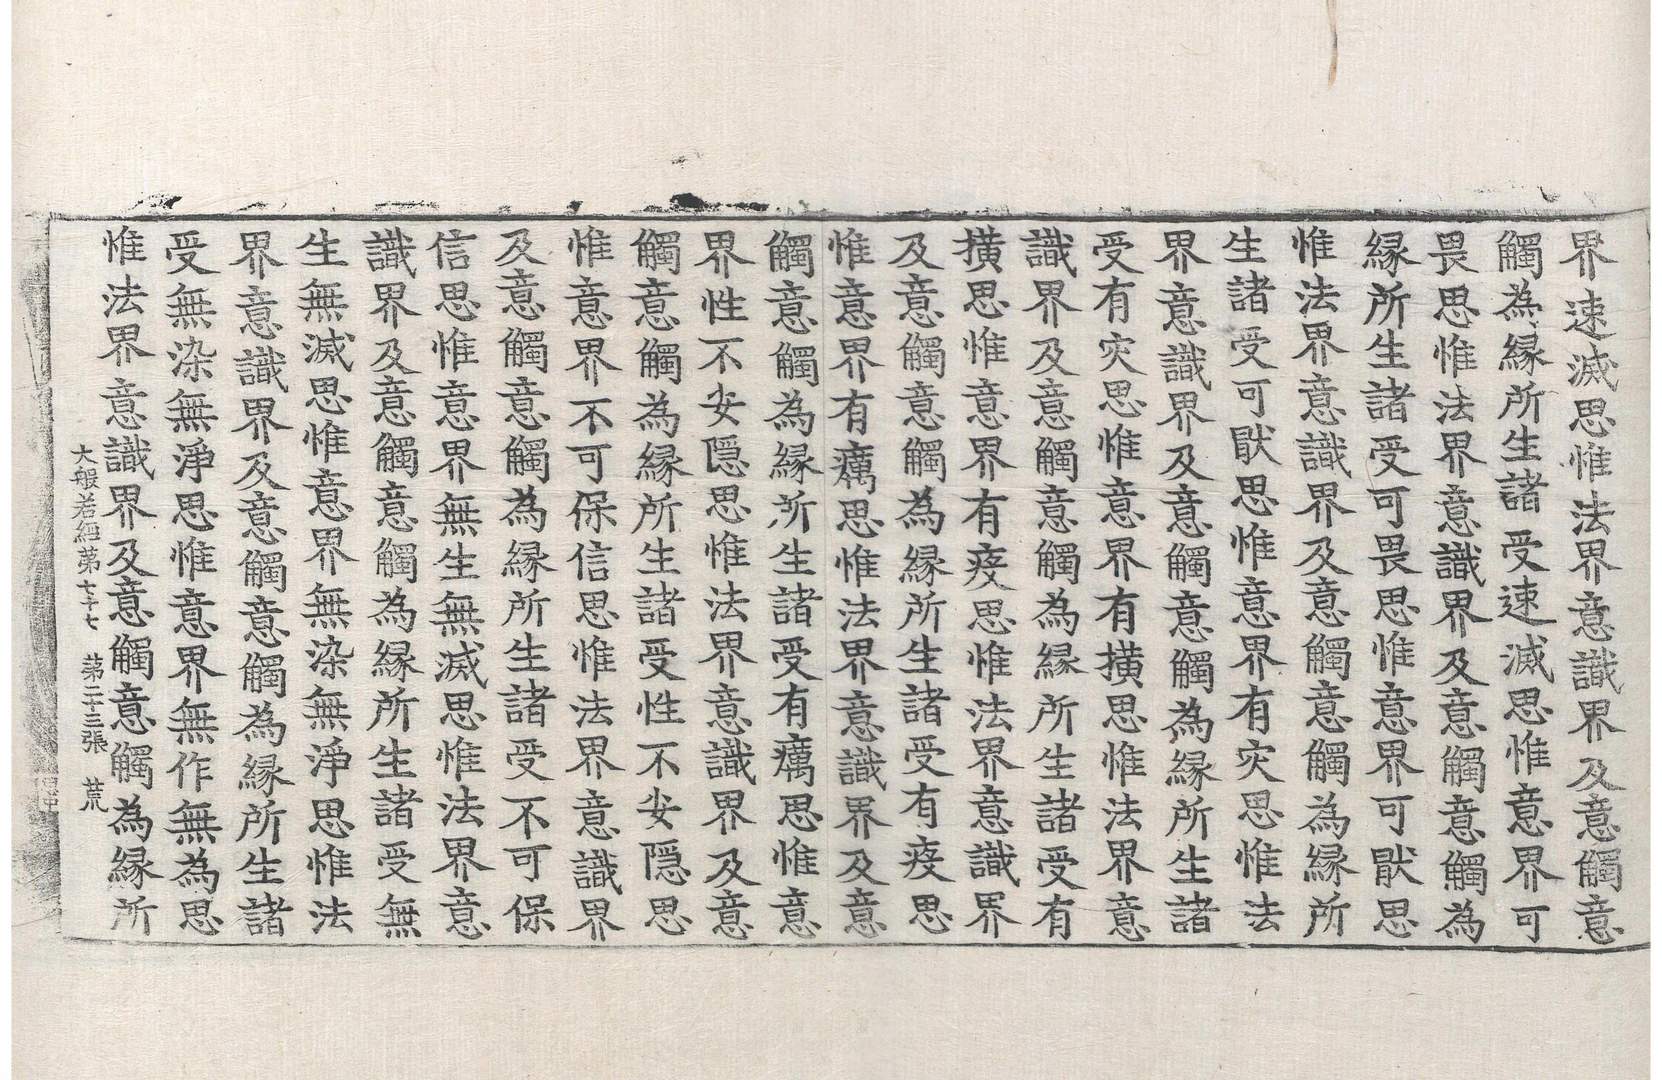 界速滅思惟法界意識界及意觸意
觸為縁所生諸受速滅思惟意界可
畏思惟法界意識界及意觸意觸為
縁所生諸受可畏思惟意界可猒思
惟法界意識界及意觸意觸為縁所
生諸受可猒思惟意界有灾思惟法
界意識界及意觸意觸為縁所生諸
受有灾思惟意界有撗思惟法界意
識界及意觸意觸為縁所生諸受有
撗思惟意界有疫思惟法界意識界
及意觸意觸為縁所生諸受有疫思
惟意界有癘思惟法界意識界及意
觸意觸為縁所生諸受有癘思惟意
界性不安隱思惟法界意識界及意
觸意觸為縁所生諸受性不安隱思
惟意界不可保信思惟法界意識界
及意觸意觸為縁所生諸受不可保
信思惟意界無生無滅思惟法界意
識界及意觸意觸為縁所生諸受無
生無滅思惟意界無染無淨思惟法
界意識界及意觸意觸為縁所生諸
受無染無淨思惟意界無作無為思
惟法界意識界及意觸意觸為縁所
大般若經第七十七 第二十三張 荒